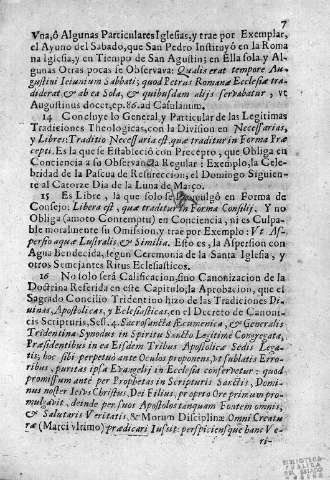 7
Vna, ó Algunas Particulares Iglesias, y trae por Exemplar,
el Ayuno del Sabado, que San Pedro Instituyó en la Roma
na Iglesia, y en Tiempo de San Agustin; en Ella sola y Al-
gunas Otras pocas se Observava: Qualis erat tempore Au-
gustini Ieiunium Sabbati; quod Petrus Romanæ Ecclesiæ tra-
diderat & ab ea Sola, & quibusdam alijs servabatur, vt
Augustinus docet, ep. 86. ad Casulanum.
14 Concluye lo General, y Particular de las Legitimas
Tradiciones Theologicas, con la Division en Necessarias,
y Libres: Traditio Necessaria est quæ traditur in Forma Præ
cepti. Es la que se Estableció con Precepto, que Obliga en
Conciencia a su Observancia Regular; Exemplo, la Cele-
bridad de la Pascua de Resurreccion, el Domingo Siguien-
te al Catorze Dia de la Luna de Março.
15 Es Libre, la que solo se vulgó en Forma de
Consejo: Libera est, quæ traditur in Forma Consilij. Y no
Obliga (amoto Contemptu) en Conciencia, ni es Culpa-
ble moralmente su Omission, y trae por Exemplo: Vt As-
persio aquæ Lustralis, & Similia. Esto es, la Aspersion con
Agua Bendecida, segun Ceremonia de la Santa Iglesia, y
otros Semejantes Ritus Eclesiasticos.
16 No solo será Calificacion, sino Canonizacion de la
Doctrina Referida en este Capitulo, la Aprobacion, que el
Sagrado Concilio Tridentino hizo de las Tradiciones Di-
uinas, Apostolicas, y Eclesiasticas, en el Decreto de Canoni-
cis Scripturis, Sess. 4. Sacrosancta Æcumenica, & Generalis
Tridentina Synodus in Spiritu Sancto Legitimé Congregata,
Præsidentibus in ea Eisdem Tribus Apostolicæ Sedis Lega-
tis, hoc sibi perpetuó ante Oculos proponens, vt sublatis Erro-
ribus, puritas ipsa Evangelij in Ecclesia conservetur: quod
promissum ante per Prophetas in Scripturis Sanctis, Domi-
nus noster Iesus Christus, Dei Filius, proprio Ore primum pro-
mulgavit, deinde per suos Apostolos tanquam Fontem omnis,
& Salutaris Veritatis, & Morum Disciplinæ Omni Creatu
ræ (Marci vltimo) prædicari Iussit: perspiciensque hanc Ve-
ri-
BIBLIOTECA